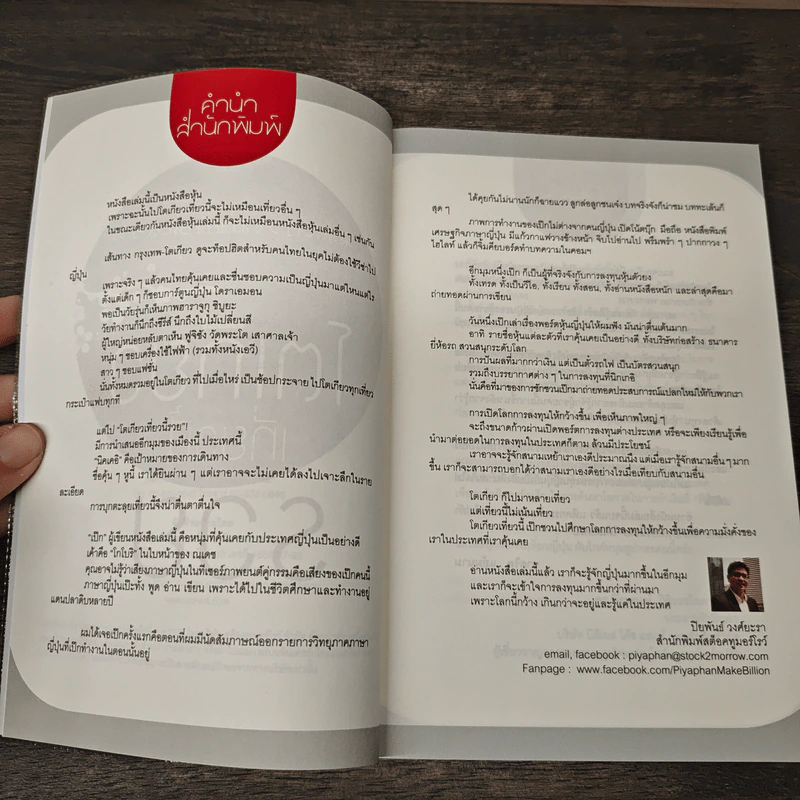 คำนำ
สำนักพิมพ์
หนังสือเล่มนี้เป็นหนังสือหุ้น
เพราะฉะนั้นไปโตเกียวเที่ยวนี้จะไม่เหมือนเที่ยวอื่น ๆ
ในขณะเดียวกันหนังสือหุ้นเล่มนี้ ก็จะไม่เหมือนหนังสือหุ้นเล่มอื่น ๆ เช่นกัน
เส้นทาง กรุงเทพ-โตเกียว ดูจะท็อปฮิตสำหรับคนไทยในยุคไม่ต้องใช้วีซ่าไป
ญี่ปุ่น
เพราะจริง ๆ แล้วคนไทยคุ้นเคยและชื่นชอบความเป็นญี่ปุ่นมาแต่ไหนแต่ไร
ตั้งแต่เด็ก ๆ ก็ชอบการ์ตูนญี่ปุ่น โดราเอมอน
พอเป็นวัยรุ่นก็เห็นภาพฮาราจูกุ ชิบูยะ
วัยทำงานก็นึกถึงซีรีส์ นึกถึงใบไม้เปลี่ยนสี
ผู้ใหญ่หน่อยหลับตาเห็น ฟูจิซัง วัดพระโต เสาศาลเจ้า
หนุ่ม ๆ ชอบเครื่องใช้ไฟฟ้า (รวมทั้งหนังเอวี)
สาว ๆ ชอบแฟชั่น
นั่นทั้งหมดรวมอยู่ในโตเกียว ที่ไปเมื่อไหร่ เป็นช้อปกระจาย ไปโตเกียวทุกเที่ยว
กระเป๋าแฟบทุกที
แต่ไป "โตเกียวเที่ยวนี้รวย"!
มีการนำเสนออีกมุมของเมืองนี้ ประเทศนี้
"นิคเคอิ" คือเป้าหมายของการเดินทาง
ชื่อคุ้น ๆ หูนี้ เราได้ยินผ่าน ๆ แต่เราอาจจะไม่เคยได้ลงไปเจาะลึกในราย
ละเอียด
การบุกตะลุยเที่ยวนี้จึงน่าตื่นตาตื่นใจ
"เป๊ก" ผู้เขียนหนังสือเล่มนี้ คือหนุ่มที่คุ้นเคยกับประเทศญี่ปุ่นเป็นอย่างดี
เค้าคือ "โกโบริ" ในใบหน้าของ ณเดช
คุณอาจไม่รู้ว่าเสียงภาษาญี่ปุ่นในทีเซอร์ภาพยนต์คู่กรรมคือเสียงของเป๊กคนนี้
ภาษาญี่ปุ่นเป๊ะทั้ง พูด อ่าน เขียน เพราะได้ไปในชีวิตศึกษาและทำงานอยู่
แดนปลาดิบหลายปี
ผมได้เจอเป๊กครั้งแรกคือตอนที่ผมมีนัดสัมภาษณ์ออกรายการวิทยุภาคภาษา
ญี่ปุ่นที่เป๊กทำงานในตอนนั้นอยู่
ได้คุยกันไม่นานนักก็ฉายแวว ลูกล่อลูกชนเจ๋ง บทจริงจังก็น่าชม บททะเล้นก็
สุด ๆ
ภาพการทำงานของเป๊กไม่ต่างจากคนญี่ปุ่น เปิดโน้ตบุ๊ก มือถือ หนังสือพิมพ์
เศรษฐกิจภาษาญี่ปุ่น มีแก้วกาแฟวางข้างหน้า จิบไปอ่านไป พรึมพรำ ๆ ปากกาวง ๆ
ไฮไลท์ แล้วก็จิ้มคีย์บอร์ดทำบทความในคอมฯ
อีกมุมหนึ่งเป๊ก ก็เป็นผู้ที่จริงจังกับการลงทุนหุ้นตัวยง
ทั้งเทรด ทั้งเป็นวีไอ, ทั้งเรียน ทั้งสอน, ทั้งอ่านหนังสือหนัก และล่าสุดคือมา
ถ่ายทอดผ่านการเขียน
วันหนึ่งเป๊กเล่าเรื่องพอร์ตหุ้นญี่ปุ่นให้ผมฟัง มันน่าตื่นเต้นมาก
อาทิ รายชื่อหุ้นแต่ละตัวที่เราคุ้นเคยเป็นอย่างดี ทั้งบริษัทก่อสร้าง ธนาคาร
ยี่ห้อรถ สวนสนุกระดับโลก
การปันผลที่มากกว่าเงิน แต่เป็นตั๋วรถไฟ เป็นบัตรสวนสนุก
รวมถึงบรรยากาศต่าง ๆ ในการลงทุนที่นิกเกอิ
นั่นคือที่มาของการชักชวนเป๊กมาถ่ายทอดประสบการณ์แปลกใหม่ให้กับพวกเรา
การเปิดโลกการลงทุนให้กว้างขึ้น เพื่อเห็นภาพใหญ่ ๆ
จะถึงขนาดก้าวผ่านเปิดพอร์ตการลงทุนต่างประเทศ หรือจะเพียงเรียนรู้เพื่อ
นำมาต่อยอดในการลงทุนในประเทศก็ตาม ล้วนมีประโยชน์
เราอาจจะรู้จักสนามเหย้าเราเองดีประมาณนึง แต่เมื่อเรารู้จักสนามอื่นๆ มาก
ขึ้น เราก็จะสามารถบอกได้ว่าสนามเราเองดีอย่างไรเมื่อเทียบกับสนามอื่น
โตเกียว ก็ไปมาหลายเที่ยว
แต่เที่ยวนี้ไม่เน้นเที่ยว
โตเกียวเที่ยวนี้ เป๊กชวนไปศึกษาโลกการลงทุนให้กว้างขึ้นเพื่อความมั่งคั่งของ
เราในประเทศที่เราคุ้นเคย
อ่านหนังสือเล่มนี้แล้ว เราก็จะรู้จักญี่ปุ่นมากขึ้นในอีกมุม
และเราก็จะเข้าใจการลงทุนมากขึ้นกว่าที่ผ่านมา
เพราะโลกนี้กว้าง เกินกว่าจะอยู่และรู้แค่ในประเทศ
ปิยพันธ์ วงศ์ยะรา
สำนักพิมพ์สต็อคทูมอร์โรว์
email, facebook : piyaphan@stock2morrow.com
Fanpage : www.facebook.com/PiyaphanMakeBillion